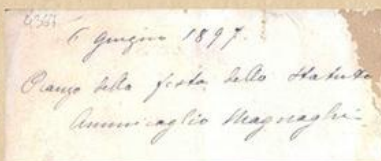 4367
6 giugno 1897.
Pranzo della festa dello Statuto
Ammiraglio Magnaghi